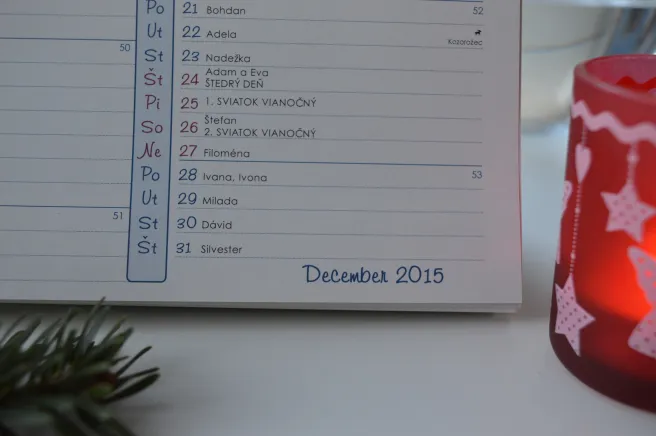 Po 21 Bohdan 52
Ut 22 Adela Kozorožec
50
St 23 Nadežka
Št 24 Adam a Eva
ŠTEDRÝ DEŇ
Pi 25 1. SVIATOK VIANOČNÝ
So 26 Štefan
2. SVIATOK VIANOČNÝ
Ne 27 Filoména
Po 28 Ivana, Ivona 53
Ut 29 Milada
51
St 30 Dávid
Št 31 Silvester
December 2015